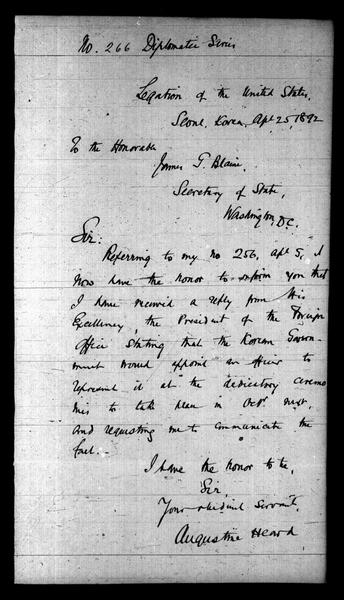 No. 266 Diplomatic Series
Legation of the United States,
Seoul, Korea, Apl 25, 1892
To the Honorable
James G. Blaine,
Secretary of State,
Washington, D.C.
Sir:
Referring to my no 256, apl 5, I
now have the honor to inform you that
I have received a reply from His
Excellency, the President of the Foreign
Office stating that the Korean Govern-
ment would appoint an officer to
represent it at the dedicatory ceremo
nies to take place in Octr next,
and requesting me to communicate the
fact.
I have the honor to be,
Sir,
Your obedient servant,
Augustine Heard